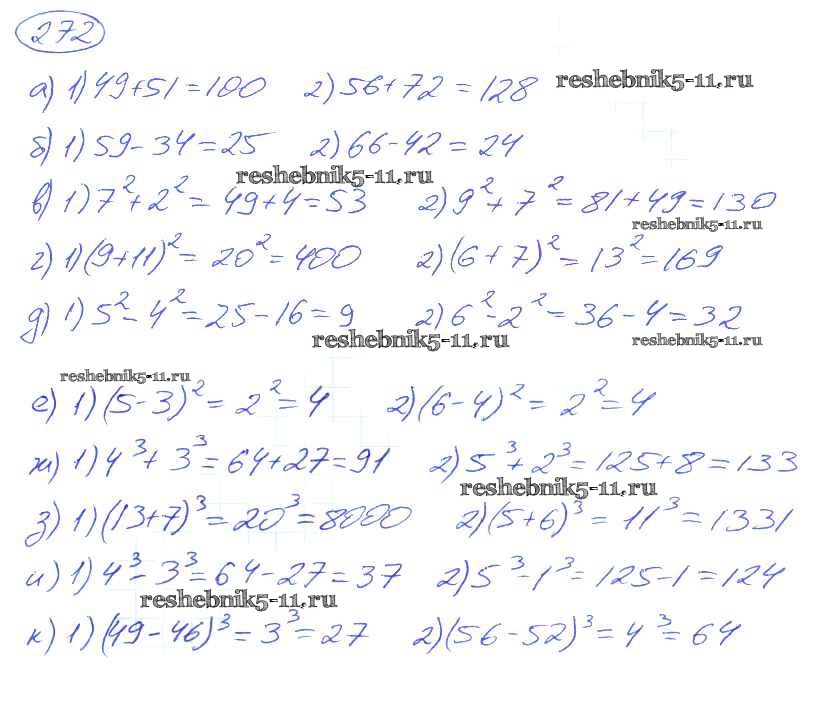 272
а) 1) 49+51=100 2) 56+72=128 reshebnik5-11.ru
б) 1) 59-34=25 2) 66-42=24
reshebnik5-11.ru
в) 1) 7²+2²=49+4=53 2) 9²+7²=81+49=130
reshebnik5-11.ru
г) 1) (9+11)²=20²=400 2) (6+7)²=13²=169
д) 1) 5²-4²=25-16=9 2) 6²-2²=36-4=32
reshebnik5-11.ru reshebnik5-11.ru
reshebnik5-11.ru
е) 1) (5-3)²=2²=4 2) (6-4)²=2²=4
ж) 1) 4³+3³=64+27=91 2) 5³+2³=125+8=133
reshebnik5-11.ru
з) 1) (13+7)³=20³=8000 2) (5+6)³=11³=1331
и) 1) 4³-3³=64-27=37 2) 5³-1³=125-1=124
reshebnik5-11.ru
к) 1) (49-46)³=3³=27 2) (56-52)³=4³=64